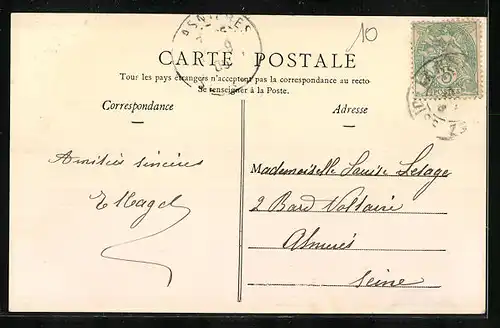 10
ASNIERES
CARTE POSTALE
Tous les pays étrangers n'acceptent pas la correspondance au recto
Se renseigner à la Poste.
Correspondance
Adresse
Amitiés sincères
Mademoiselle Louise Lesage
2 Bard Voltaire
Seine